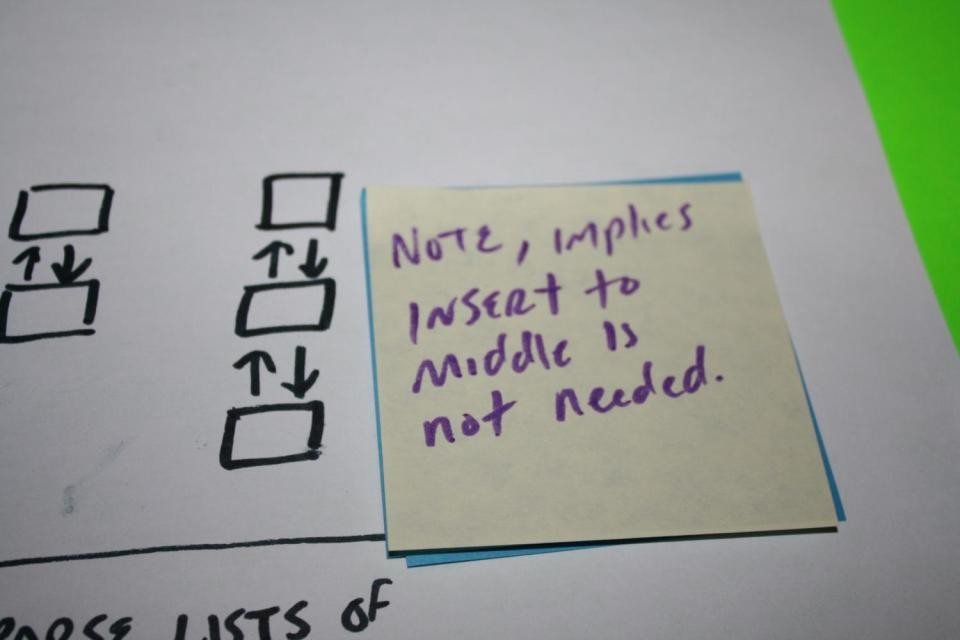 NOTE, implies
INSERT to
Middle Is
not needed.
LISTS OF